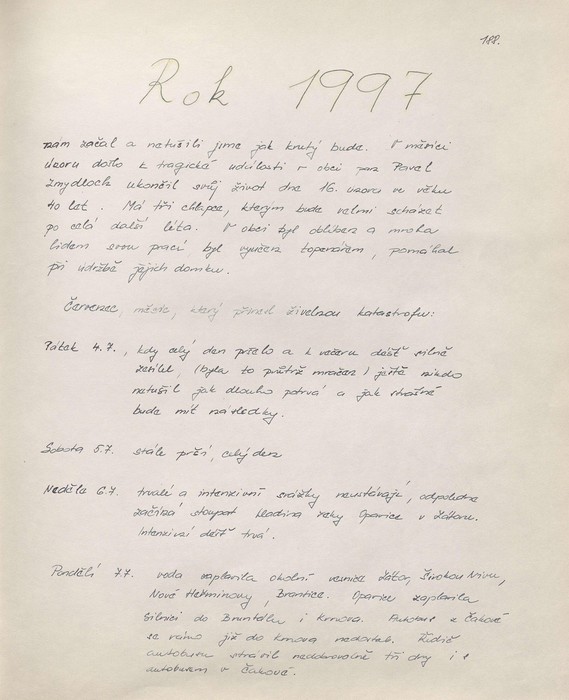 188.
Rok 1997
nám začal a netušili jsme jak krutý bude. V měsíci
únoru došlo k tragické události v obci pan Pavel
Žmydloch ukončil svůj život dne 16. února ve věku
40 let. Má tři chlapce, kterým bude velmi scházet
po celá další léta. V obci byl oblíben a mnoha
lidem svou prací byl vyučen topenářem, pomáhal
při údržbě jejich domku.
Červenec, měsíc, který přinesl živelnou katastrofu:
Pátek 4.7., kdy celý den pršelo a k večeru déšť silně
zesílel, (byla to průtrž mračen) ještě nikdo
netušil jak dlouho potrvá a jak strašné
bude mít následky.
Sobota 5.7. stále prší, celý den
Neděle 6.7. trvalé a intenzivní srážky neustávají, odpoledne
začíná stoupat hladina řeky Opavice v Zátoru.
Intenzivní déšť trvá.
Pondělí 7.7. voda zaplavila okolní vesnice Zátor, Širokou Nivu,
Nové Heřminovy, Brantice. Opavice zaplavila
silnici do Bruntálu i Krnova. Autobus z Čakové
se ráno již do Krnova nedostal. Řidič
autobusu strávil nedobrovolně tři dny i s
autobusem v Čakové.